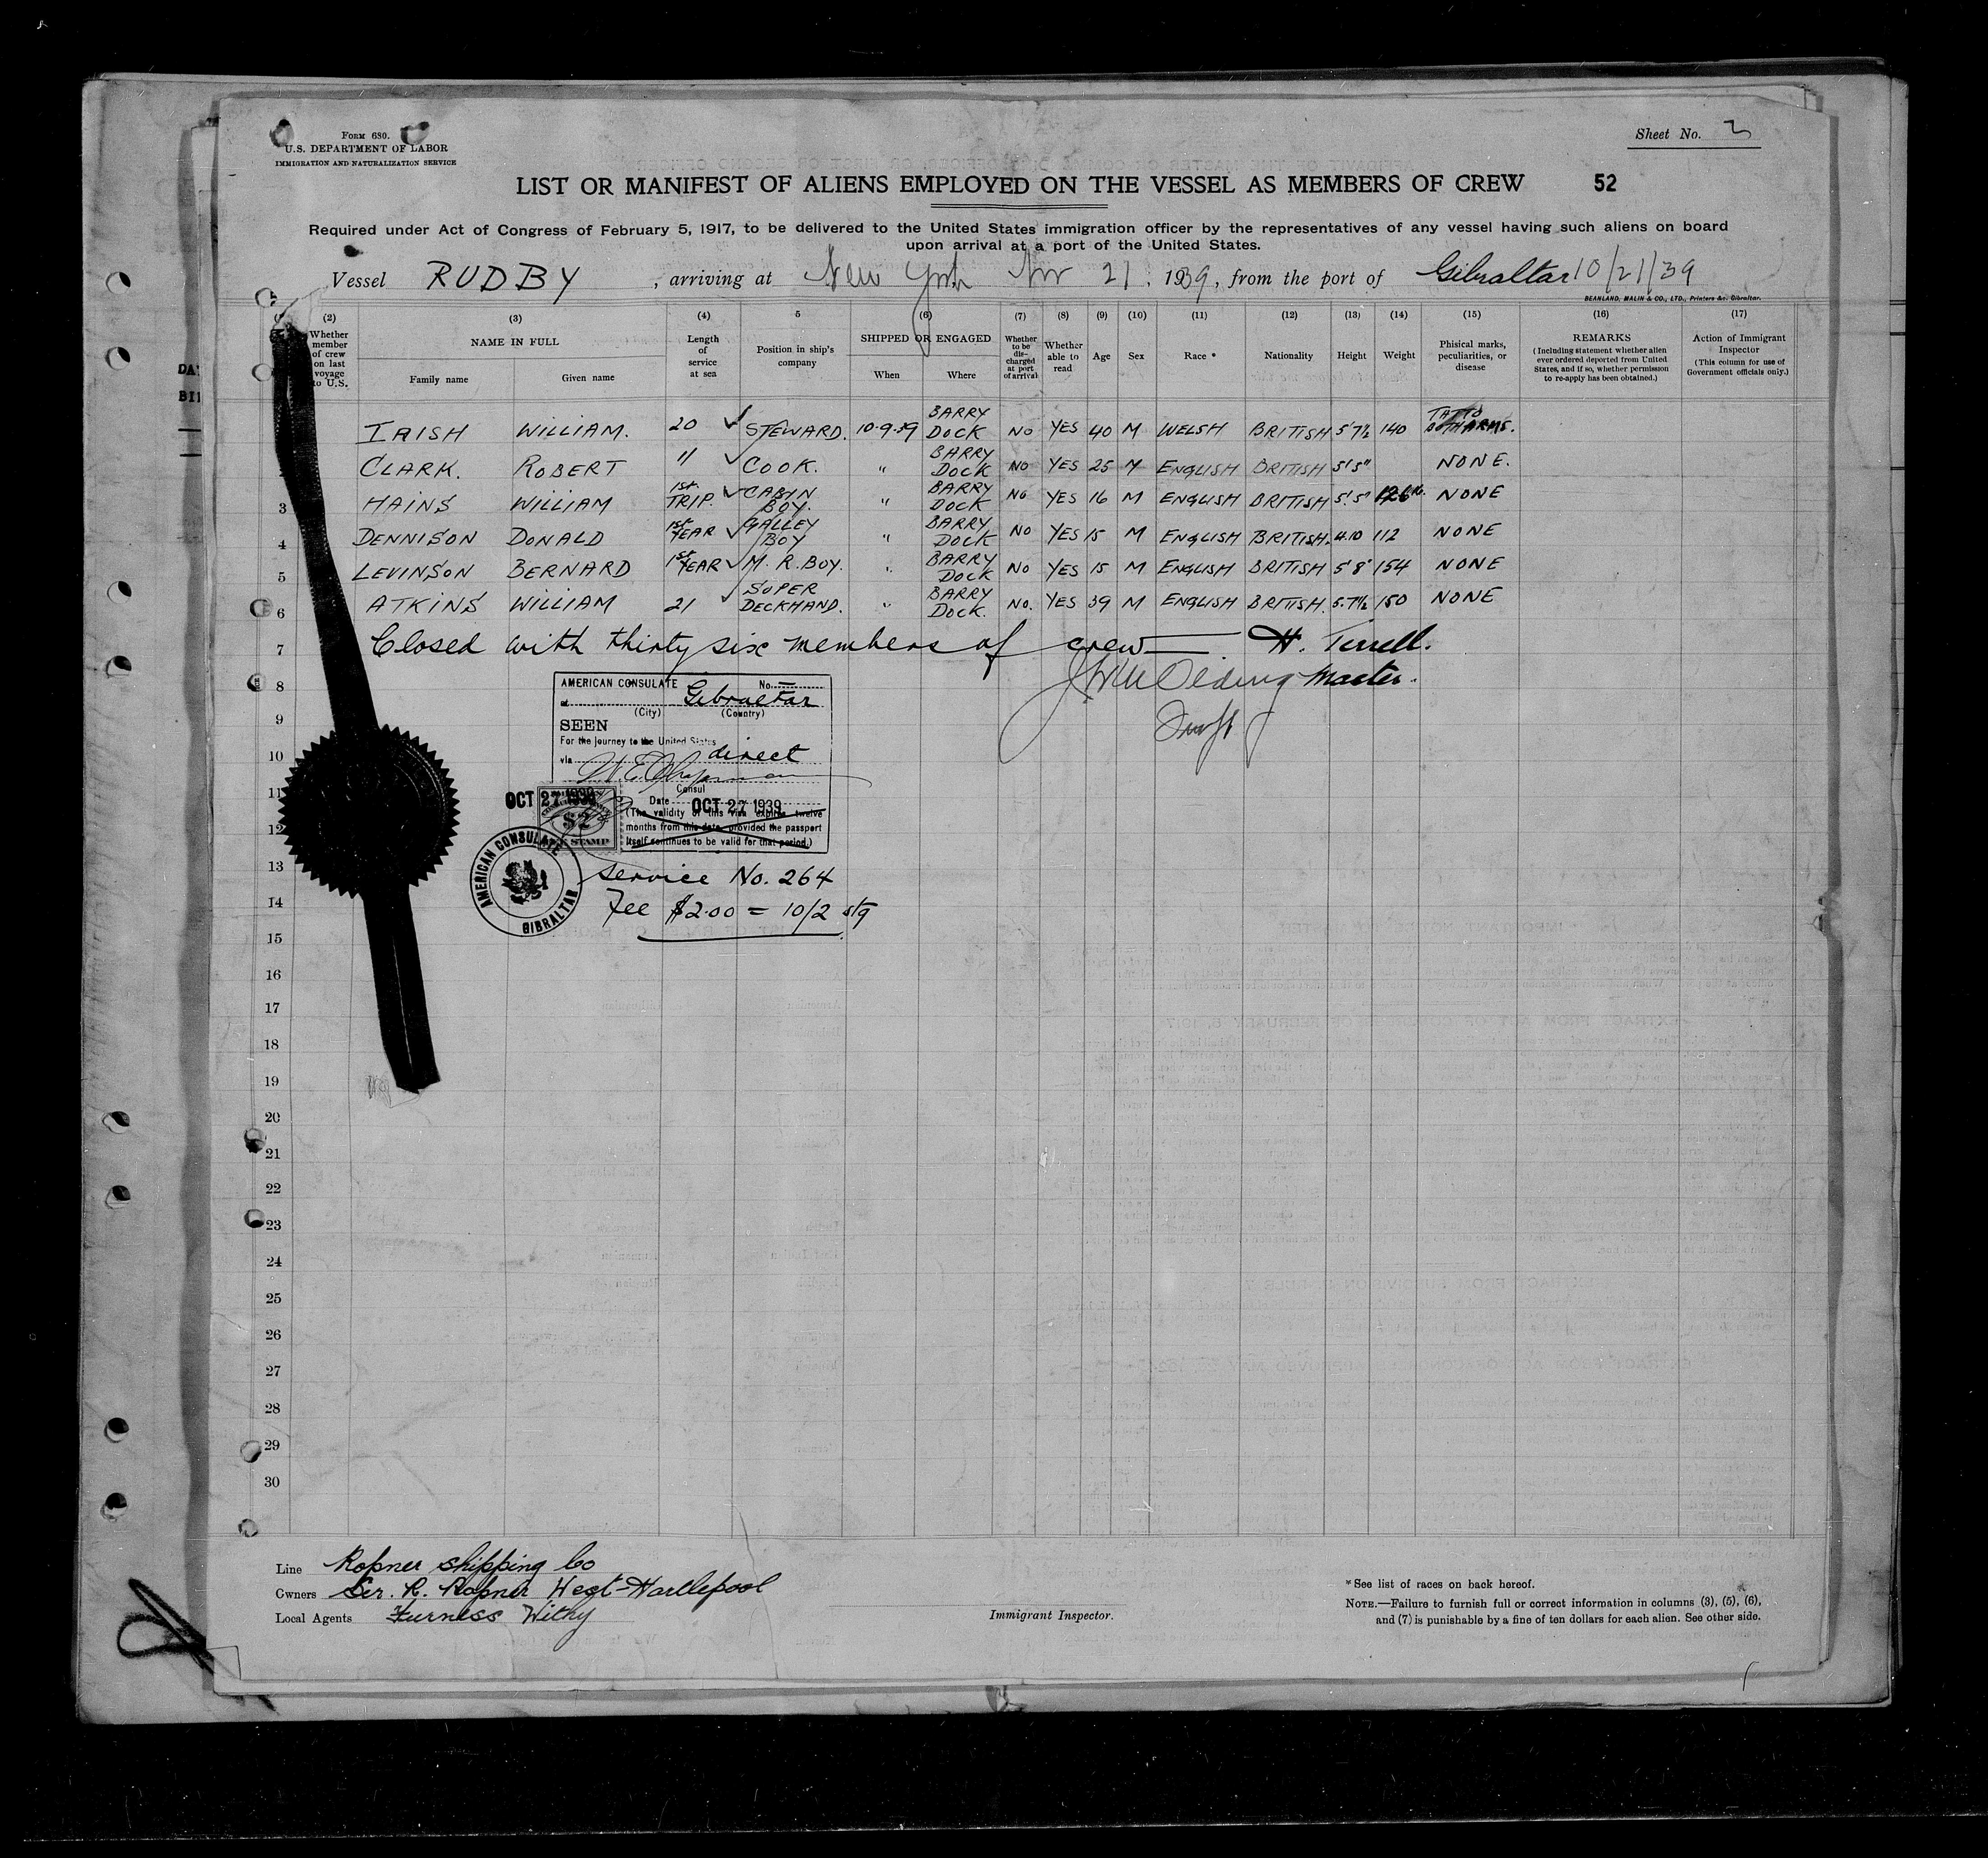 Form 680.
U.S. DEPARTMENT OF LABOR
IMMIGRATION AND NATURALIZATION SERVICE
Sheet No. 2
LIST OR MANIFEST OF ALIENS EMPLOYED ON THE VESSEL AS MEMBERS OF CREW 52
Required under Act of Congress of February 5, 1917, to be delivered to the United States immigration officer by the representatives of any vessel having such aliens on board
upon arrival at a port of the United States.
Vessel RUDBY, arriving at New York Nov 21, 1939, from the port of Gibraltar 10/21/39
BEANLAND, MALIN & CO., LTD., Printers &c. Gibraltar.
(2) (3) (4) 5 (6) (7) (8) (9) (10) (11) (12) (13) (14) (15) (16) (17)
Whether member of crew on last voyage to U.S. NAME IN FULL Family name Given name Length of service at sea Position in ship's company SHIPPED OR ENGAGED When Where Whether to be discharged at port of arrival Whether able to read Age Sex Race * Nationality Height Weight Phisical marks, peculiarities, or disease REMARKS (Including statement whether alien ever ordered deported from United States, and if so, whether permission to re-apply has been obtained.) Action of Immigrant Inspector (This column for use of Government officials only.)
IRISH WILLIAM. 20 ✓ STEWARD. 10-9-39 BARRY DOCK NO YES 40 M WELSH BRITISH 5'7½ 140 TATTO BOTH ARMS.
CLARK. ROBERT 11 ✓ COOK. " BARRY DOCK NO YES 25 M ENGLISH BRITISH 5'5" NONE.
3 HAINS WILLIAM 1st TRIP. ✓ CABIN BOY. " BARRY DOCK NO YES 16 M ENGLISH BRITISH 5'5" 126 lb. NONE
4 DENNISON DONALD 1st YEAR ✓ GALLEY BOY " BARRY DOCK NO YES 15 M ENGLISH BRITISH. 4.10 112 NONE
5 LEVINSON BERNARD 1st YEAR ✓ M. R. BOY. " BARRY DOCK NO YES 15 M ENGLISH BRITISH 5'8" 154 NONE
6 ATKINS WILLIAM 21 ✓ SUPER DECKHAND. " BARRY DOCK. NO. YES 39 M ENGLISH BRITISH. 5.7½ 150 NONE
7 Closed with thirty six members of crew — H. Tirrell.
8 Master.
AMERICAN CONSULATE No.
at Gibraltar
(City) (Country)
9
SEEN
For the journey to the United States
10 via direct
Consul
11
OCT 27 1939
Date OCT 27 1939
$2
12
(The validity of this visa expires twelve
months from this date, provided the passport
itself continues to be valid for that period.)
STAMP
AMERICAN CONSULATE
GIBRALTAR
13 Service No. 264
14 Fee $2.00 = 10/2 stg
15
16
17
18
19
20
21
22
23
24
25
26
27
28
29
30
Line Ropner Shipping Co
Owners Sir. R. Ropner West-Hartlepool
Local Agents Furness Withy
Immigrant Inspector.
*See list of races on back hereof.
NOTE.—Failure to furnish full or correct information in columns (3), (5), (6),
and (7) is punishable by a fine of ten dollars for each alien. See other side.